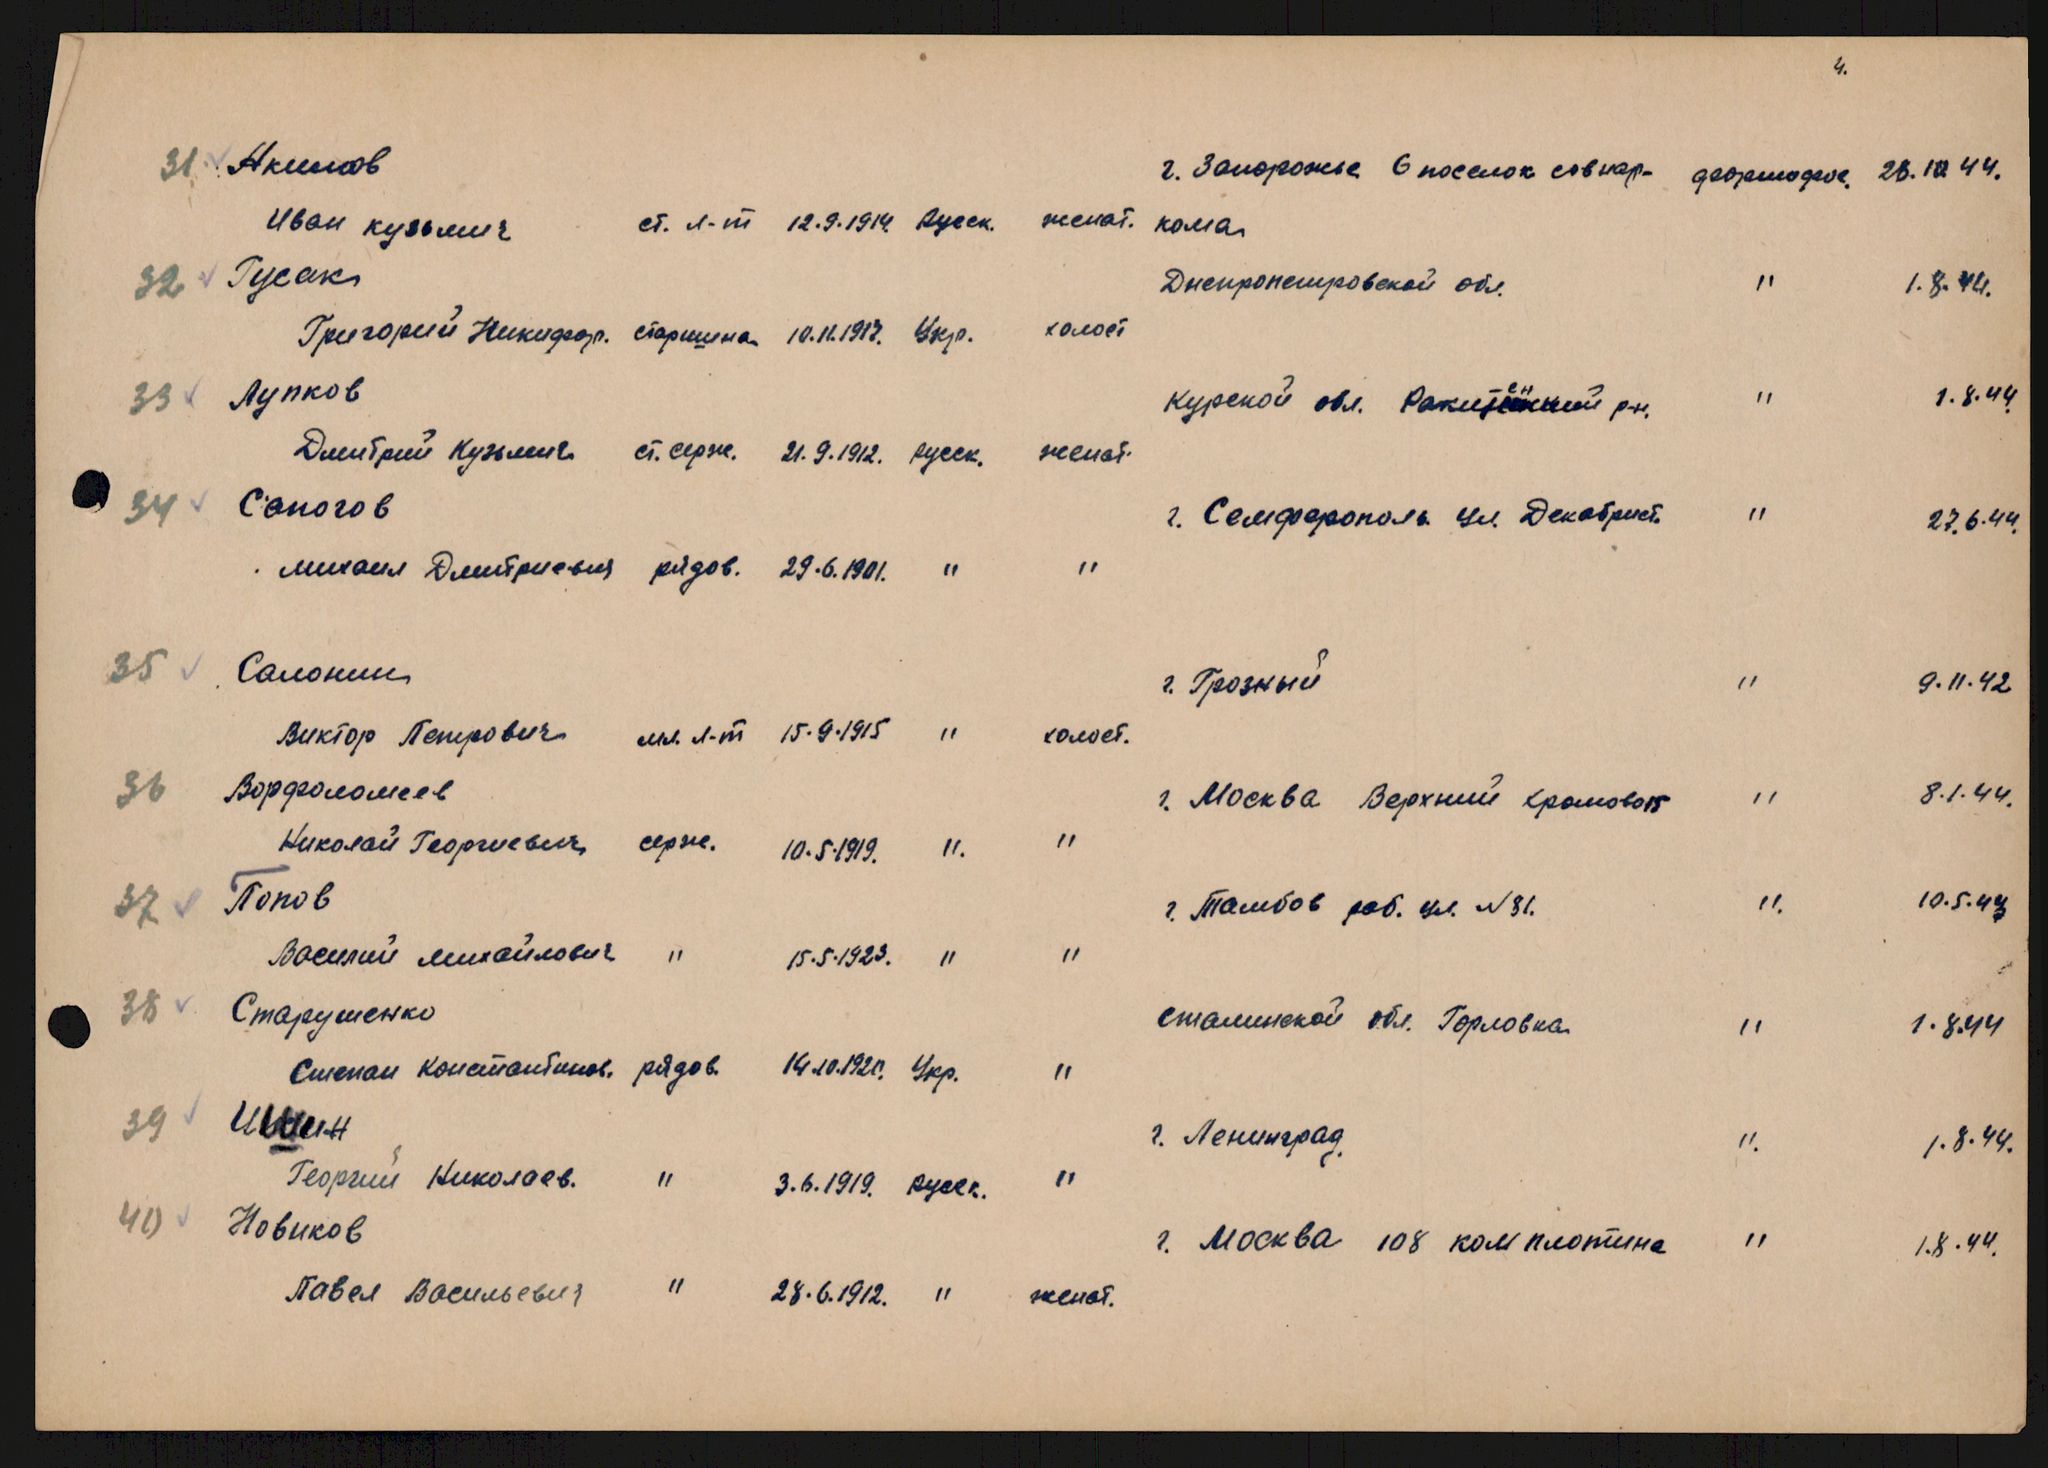 4.
31 Акимов г. Запорожье 6 поселок совнар- 28.10 44.
Иван Кузьмич ст. л-т 12.9.1914. Русск. женат. кома
32 Гусак Днепропетровской обл. " 1.8.44.
Григорий Никифор. старшина 10.11.1917. Укр. холост
33 Лупков Курской обл. р-н. " 1.8.44.
Дмитрий Кузьмич ст. серж. 21.9.1912. Русск. женат.
34 Сапогов г. Семферополь ул. Декабрист. " 27.6.44.
Михаил Дмитриевич рядов. 29.6.1901. " "
35 Салонин г. Грозный " 9.11.42
Виктор Петрович мл. л-т 15.9.1915 " холост.
36 Ворфоломеев г. Москва Верхний " 8.1.44.
Николай Георгиевич серж. 10.5.1919. ". "
37 Попов г. Тамбов раб. ул. №31. ". 10.5.43
Василий Михайлович " 15.5.1923. " "
38 Старушенко Сталинской обл. Горловка " 1.8.44
Степан Константинов. рядов. Укр. "
39 г. Ленинград. ". 1.8.44.
Георгий Николаев. " 3.6.1919. Русск. "
40 Новиков г. Москва 108 ком плотина " 1.8.44.
Павел Васильевич " 28.6.1912. " женат.